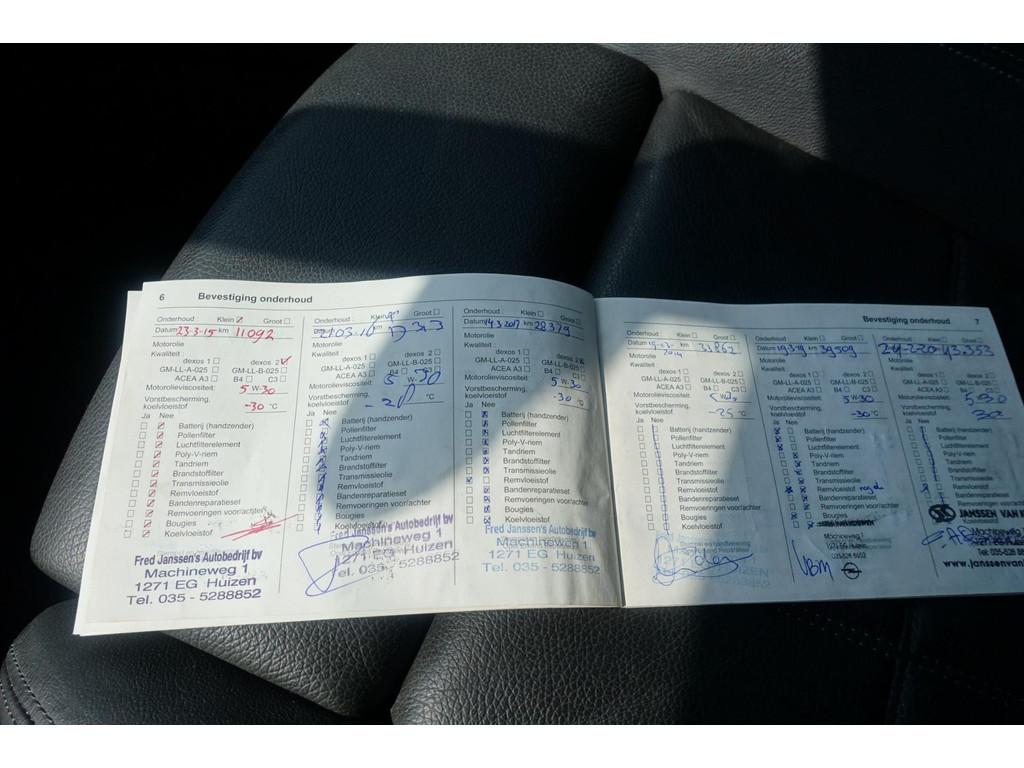 6 Bevestiging onderhoud
Onderhoud : Klein Groot
Datum 23-3-15 km 11092
Motorolie
Kwaliteit :
dexos 1 dexos 2
GM-LL-A-025 GM-LL-B-025
ACEA A3 B4 C3
Motorolieviscositeit: 5 W-30
Vorstbescherming, koelvloeistof -30 °C
Ja Nee
Batterij (handzender)
Pollenfilter
Luchtfilterelement
Poly-V-riem
Tandriem
Brandstoffilter
Transmissieolie
Remvloeistof
Bandenreparatieset
Remvoeringen voor/achter
Bougies
Koelvloeistof
Fred Janssen's Autobedrijf bv
Machineweg 1
1271 EG Huizen
Tel. 035 - 5288852
Onderhoud : Klein Groot
km
Motorolie
Kwaliteit :
dexos 1 dexos 2
GM-LL-A-025 GM-LL-B-025
ACEA A3 B4 C3
Motorolieviscositeit: 5 W-30
Vorstbescherming,
koelvloeistof
Ja Nee
Batterij (handzender)
Pollenfilter
Luchtfilterelement
Poly-V-riem
Tandriem
Brandstoffilter
Transmissieolie
Remvloeistof
Bandenreparatieset
Remvoeringen voor/achter
Bougies
Koelvloeistof
Fred Janssen's Autobedrijf bv
Machineweg 1
1271 EG Huizen
Tel. 035 - 5288852
Onderhoud : Klein Groot
Datum 14 3 2017 km 28379
Motorolie
Kwaliteit :
dexos 1 dexos 2
GM-LL-A-025 GM-LL-B-025
ACEA A3 B4 C3
Motorolieviscositeit: 5 W-30
Vorstbescherming,
koelvloeistof -30 °C
Ja Nee
Batterij (handzender)
Pollenfilter
Luchtfilterelement
Poly-V-riem
Tandriem
Brandstoffilter
Transmissieolie
Remvloeistof
Bandenreparatieset
Remvoeringen voor/achter
Bougies
Koelvloeistof
Fred Janssen's Autobedrijf bv
Machineweg 1
1271 EG Huizen
Tel. 035 - 5288852
Bevestiging onderhoud 7
Onderhoud : Klein Groot
Datum km 33862
Motorolie
Kwaliteit :
dexos 1 dexos 2
GM-LL-A-025 GM-LL-B-025
ACEA A3 B4 C3
Motorolieviscositeit:
Vorstbescherming,
koelvloeistof -25 °C
Ja Nee
Batterij (handzender)
Pollenfilter
Luchtfilterelement
Poly-V-riem
Tandriem
Brandstoffilter
Transmissieolie
Remvloeistof
Bandenreparatieset
Remvoeringen voor/achter
Bougies
Koelvloeistof
Onderhoud : Klein Groot
Datum 19-3-19 km 39509
Motorolie
Kwaliteit :
dexos 1 dexos 2
GM-LL-A-025 GM-LL-B-025
ACEA A3 B4 C3
Motorolieviscositeit: 5 W-30
Vorstbescherming,
koelvloeistof -30 °C
Ja Nee
Batterij (handzender)
Pollenfilter
Luchtfilterelement
Poly-V-riem
Tandriem
Brandstoffilter
Transmissieolie
Remvloeistof
Bandenreparatieset
Remvoeringen voor/achter
Bougies
Koelvloeistof
Onderhoud : Klein Groot
43.353
Motorolie
Kwaliteit :
dexos 1 dexos 2
GM-LL-A-025 GM-LL-B-025
ACEA A3 B4 C3
Motorolieviscositeit: 5 30
Vorstbescherming,
koelvloeistof 30
Ja Nee
Batterij (handzender)
Pollenfilter
Luchtfilterelement
Poly-V-riem
Tandriem
Brandstoffilter
Transmissieolie
Remvloeistof
Bandenreparatieset
JANSSEN VAN
www.janssenvan